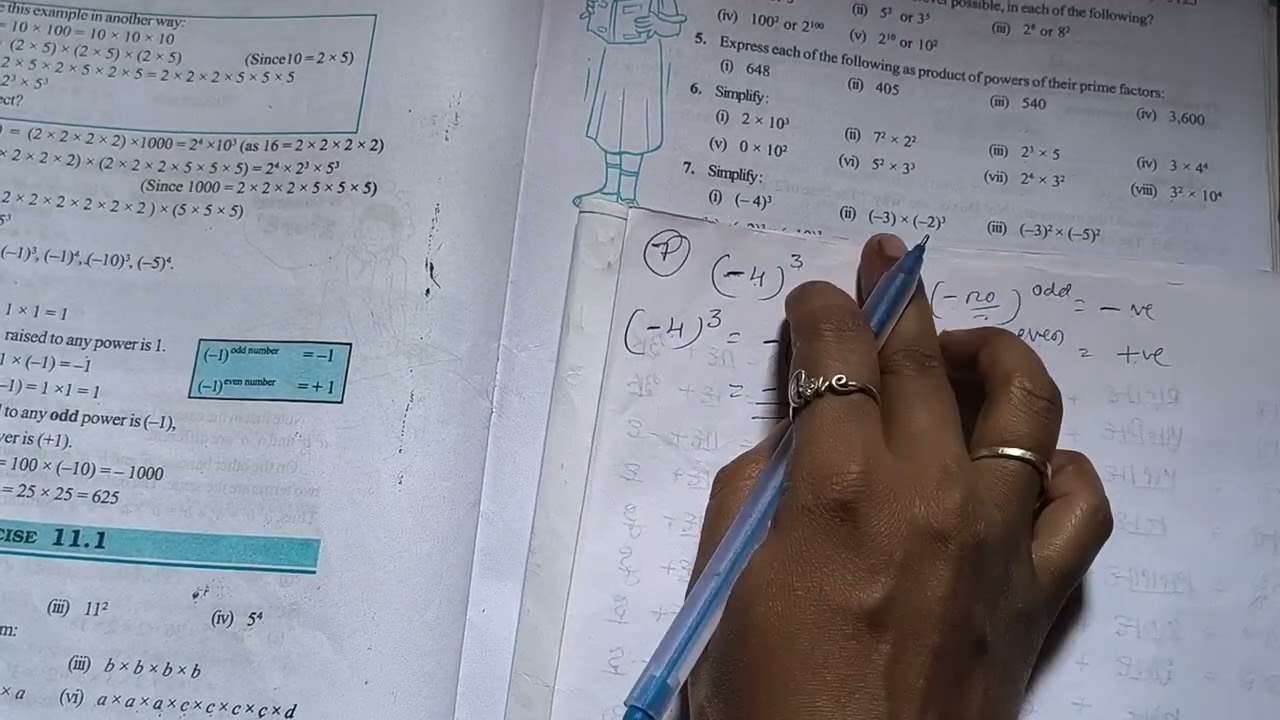 e this example in another way:
= 10 × 100 = 10 × 10 × 10
(2 × 5) × (2 × 5) × (2 × 5) (Since 10 = 2 × 5)
2 × 5 × 2 × 5 × 2 × 5 = 2 × 2 × 2 × 5 × 5 × 5
2³ × 5³
ect?
= (2 × 2 × 2 × 2) ×1000 = 2⁴ ×10³ (as 16 = 2 × 2 × 2 × 2)
× 2 × 2 × 2) × (2 × 2 × 2 × 5 × 5 × 5) = 2⁴ × 2³ × 5³
(Since 1000 = 2 × 2 × 2 × 5 × 5 × 5)
2 × 2 × 2 × 2 × 2 × 2 ) × (5 × 5 × 5)
5³
(–1)³, (–1)⁴, (–10)³, (–5)⁴.
1 × 1 = 1
raised to any power is 1.
1 × (–1) = –1
–1) = 1 ×1 = 1
to any odd power is (–1),
ver is (+1).
= 100 × (–10) = – 1000
= 25 × 25 = 625
(–1)ᵒᵈᵈ ⁿᵘᵐᵇᵉʳ = –1
(–1)ᵉᵛᵉⁿ ⁿᵘᵐᵇᵉʳ = + 1
CISE 11.1
(iii) 11² (iv) 5⁴
m:
(iii) b × b × b × b
× a (vi) a × a × a × c × c × c × c × d
possible, in each of the following?
(ii) 5³ or 3⁵ (iii) 2⁸ or 8²
(iv) 100² or 2¹⁰⁰ (v) 2¹⁰ or 10²
5. Express each of the following as product of powers of their prime factors:
(i) 648 (ii) 405 (iii) 540 (iv) 3,600
6. Simplify:
(i) 2 × 10³ (ii) 7² × 2² (iii) 2³ × 5 (iv) 3 × 4⁴
(v) 0 × 10² (vi) 5² × 3³ (vii) 2⁴ × 3² (viii) 3² × 10⁴
7. Simplify:
(i) (– 4)³ (ii) (–3) × (–2)³ (iii) (–3)² × (–5)²
(-4)³
(-no)ᵒᵈᵈ = -ve
(-4)³ = -
even = +ve
= -